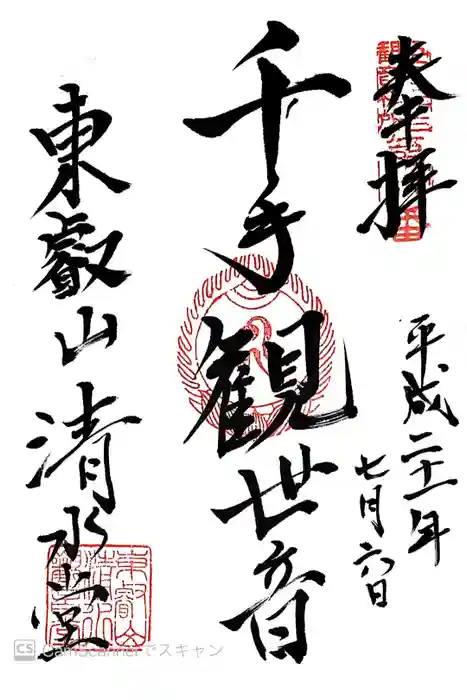 奉拝
平成二十一年
七月六日
千手観世音
東叡山清水堂
CS CamScannerでスキャン